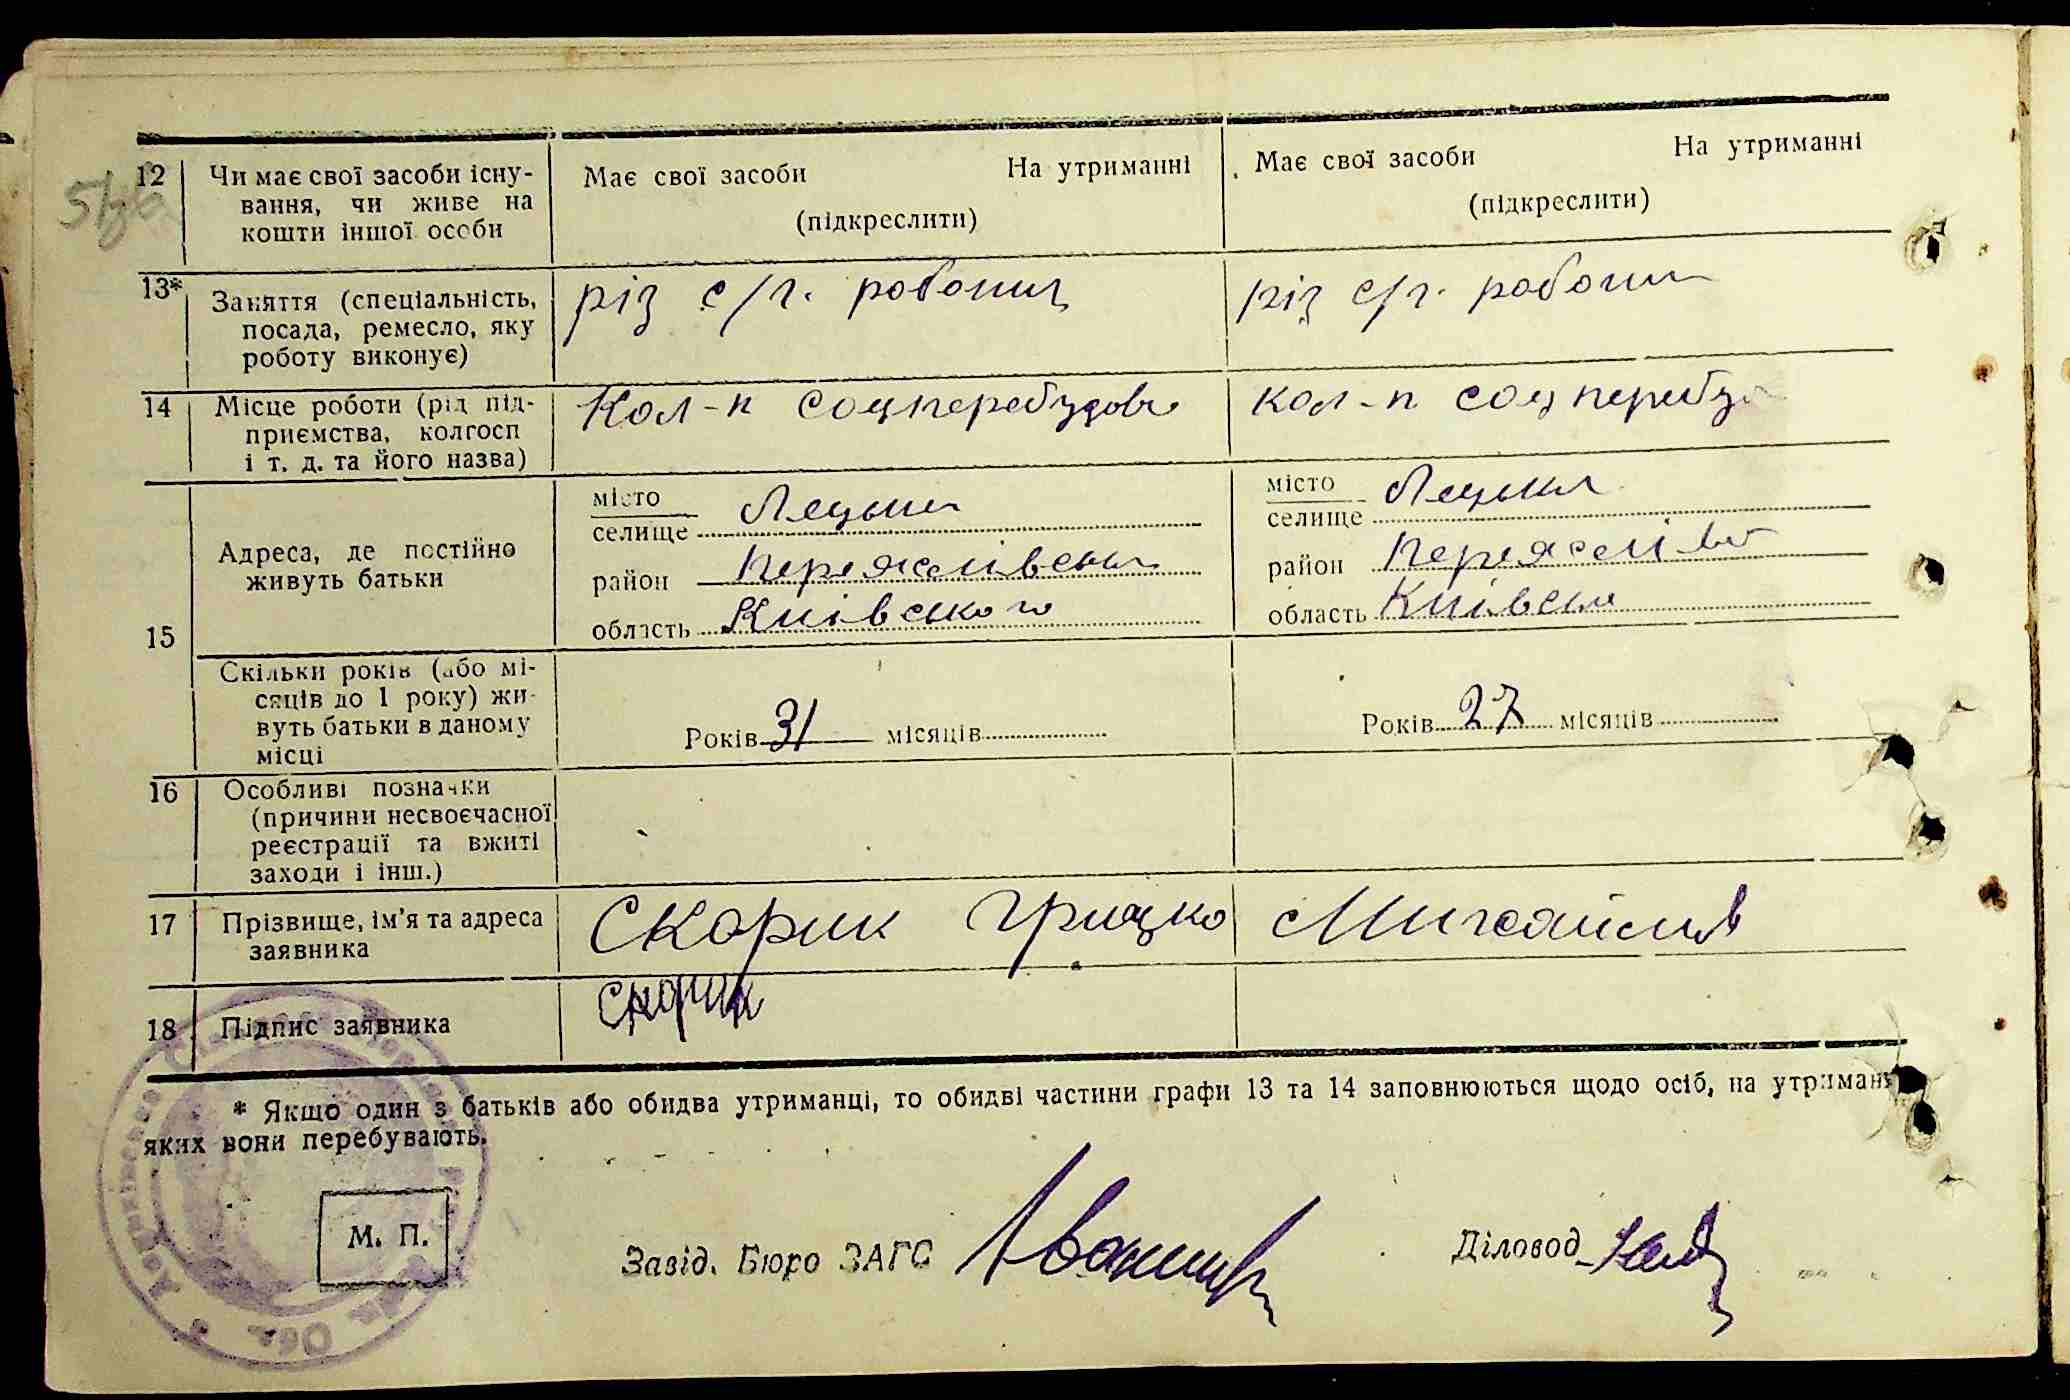 12 Чи має свої засоби існу-
вання, чи живе на
кошти іншої особи
Має свої засоби На утриманні
(підкреслити)
Має свої засоби На утриманні
(підкреслити)
13* Заняття (спеціальність,
посада, ремесло, яку
роботу виконує)
різ с/г. робочий
різ с/г. робочий
14 Місце роботи (рід під-
приємства, колгосп
і т. д. та його назва)
Кол-п соцперебудова
Кол-п соцперебуд
15 Адреса, де постійно
живуть батьки
місто
селище Лецьки
район Переяслівськ
область Київського
місто
селище Лецьки
район Переяслів
область Київськ
Скільки років (або мі-
сяців до 1 року) жи-
вуть батьки в даному
місці
Років 31 місяців
Років 27 місяців
16 Особливі позначки
(причини несвоєчасної
реєстрації та вжиті
заходи і інш.)
17 Прізвище, ім'я та адреса
заявника
Скорик Грицко Михайлив
18 Підпис заявника
Скорик
* Якщо один з батьків або обидва утриманці, то обидві частини графи 13 та 14 заповнюються щодо осіб, на утриманні
яких вони перебувають.
М. П.
Завід. Бюро ЗАГС
Діловод